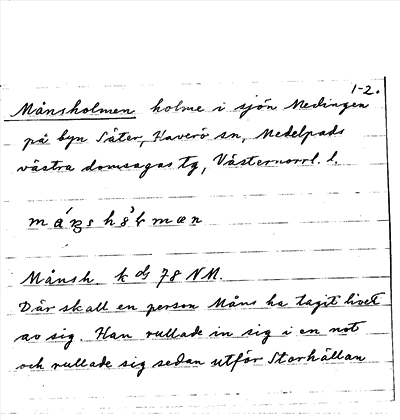 1-2.
Månsholmen holme i sjön Medingen
på byn Säter, Haverö sn, Medelpads
västra domsagas tg, Västernorrl. l.
Månsh. k dg 78 NM.
Där skall en person Måns ha tagit livet
av sig. Han rullade in sig i en not
och rullade sig sedan utför Storhällan